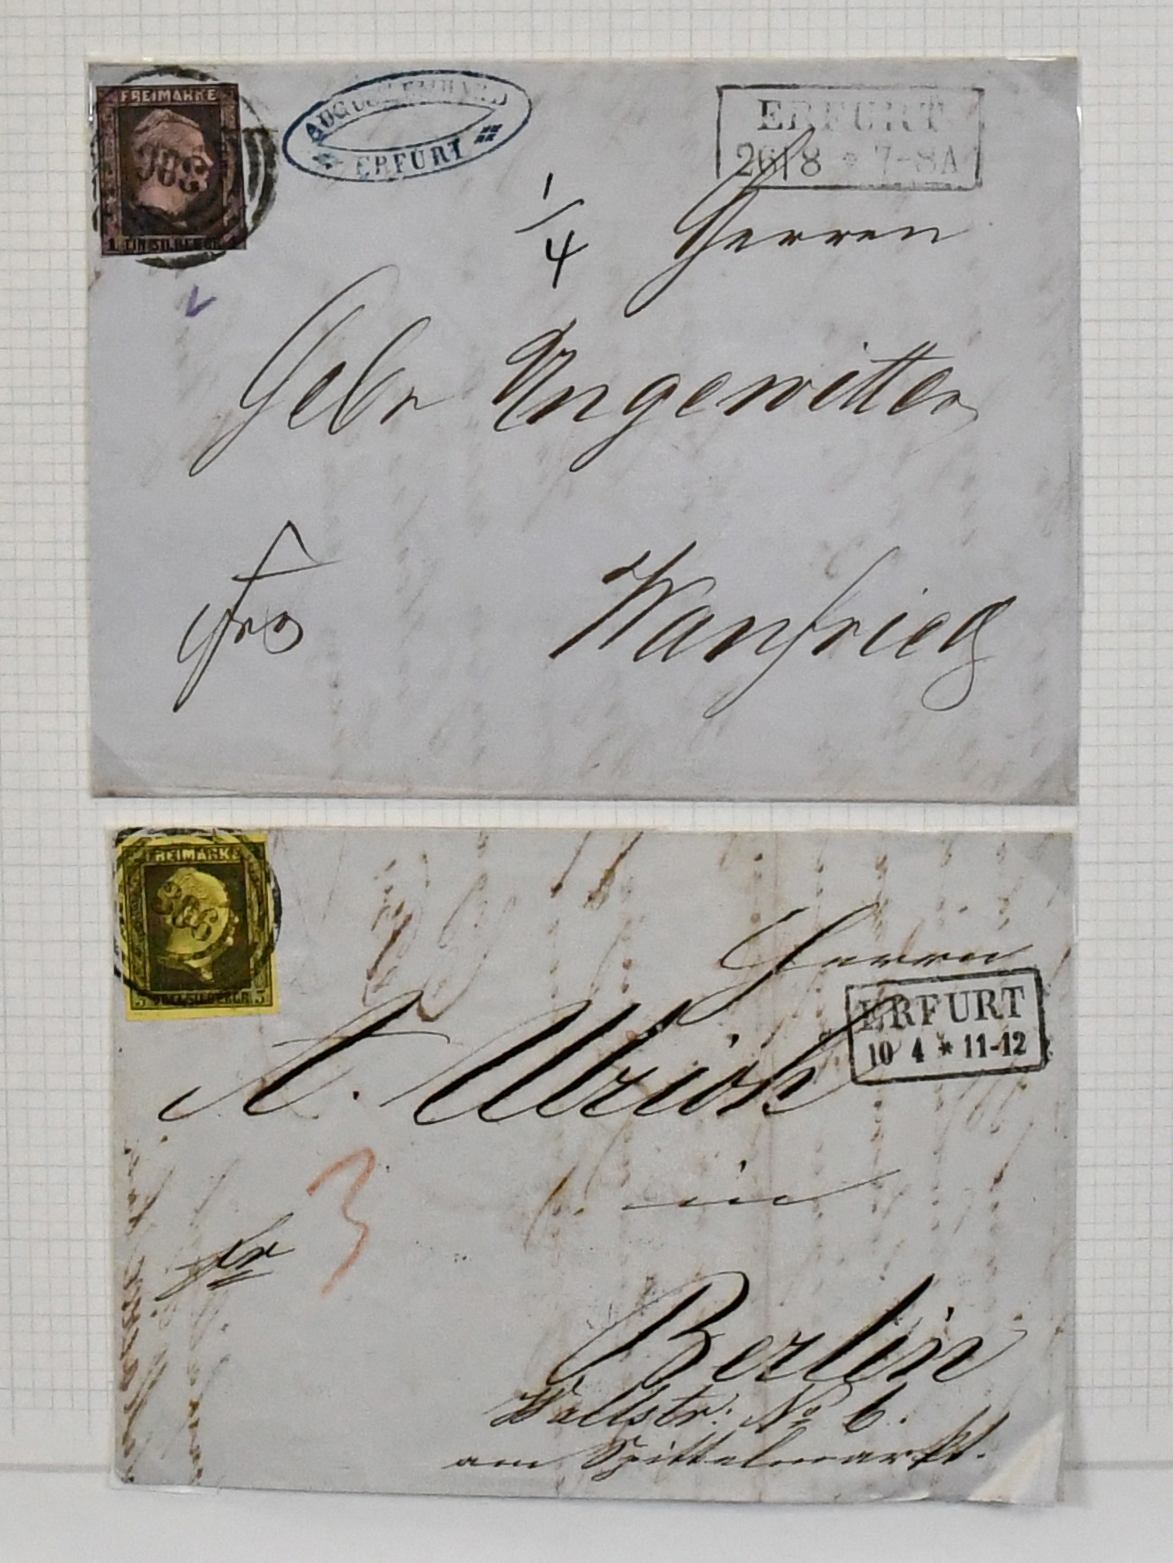 FREIMARKE
1 EIN SILBERGR. 1
ERFURT
ERFURT
26 8 * 7-8A
1/4
Herren
Gebr Ungewitter
fro
Wanfried
FREIMARKE
3 SILBERGR. 3
Herrn
ERFURT
10 4 * 11-12
A. Ulrich
3
in
fr
Berlin
Wallstr: No 6.
am Spittelmarkt.